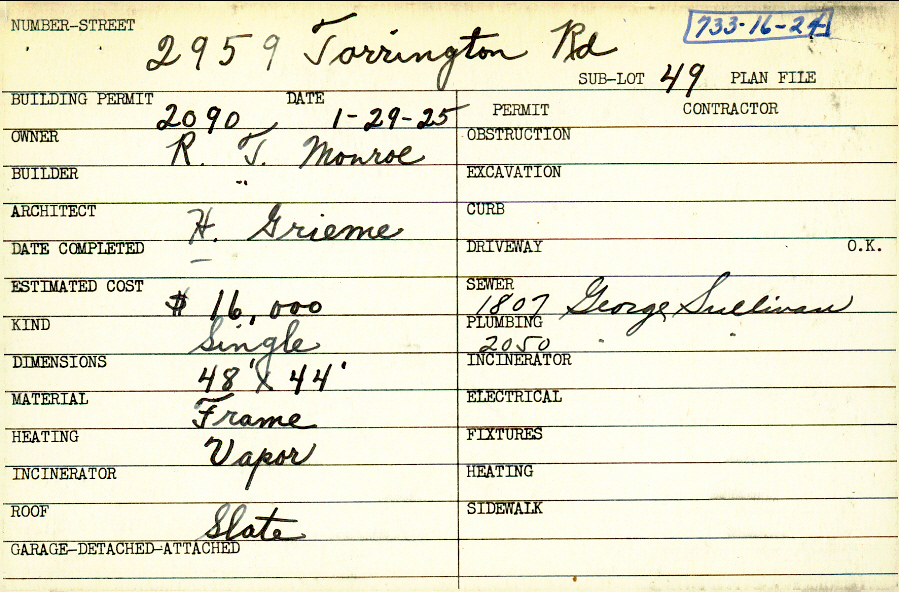 NUMBER-STREET
2959 Torrington Rd
733-16-24
SUB-LOT 49 PLAN FILE
BUILDING PERMIT 2090 DATE 1-29-25
OWNER R. T. Monroe
BUILDER "
ARCHITECT H. Grieme
DATE COMPLETED —
ESTIMATED COST $16,000
KIND Single
DIMENSIONS 48' X 44'
MATERIAL Frame
HEATING Vapor
INCINERATOR
ROOF Slate
GARAGE-DETACHED-ATTACHED
PERMIT CONTRACTOR
OBSTRUCTION
EXCAVATION
CURB
DRIVEWAY O.K.
SEWER 1807 George Sullivan
PLUMBING 2050 " "
INCINERATOR
ELECTRICAL
FIXTURES
HEATING
SIDEWALK